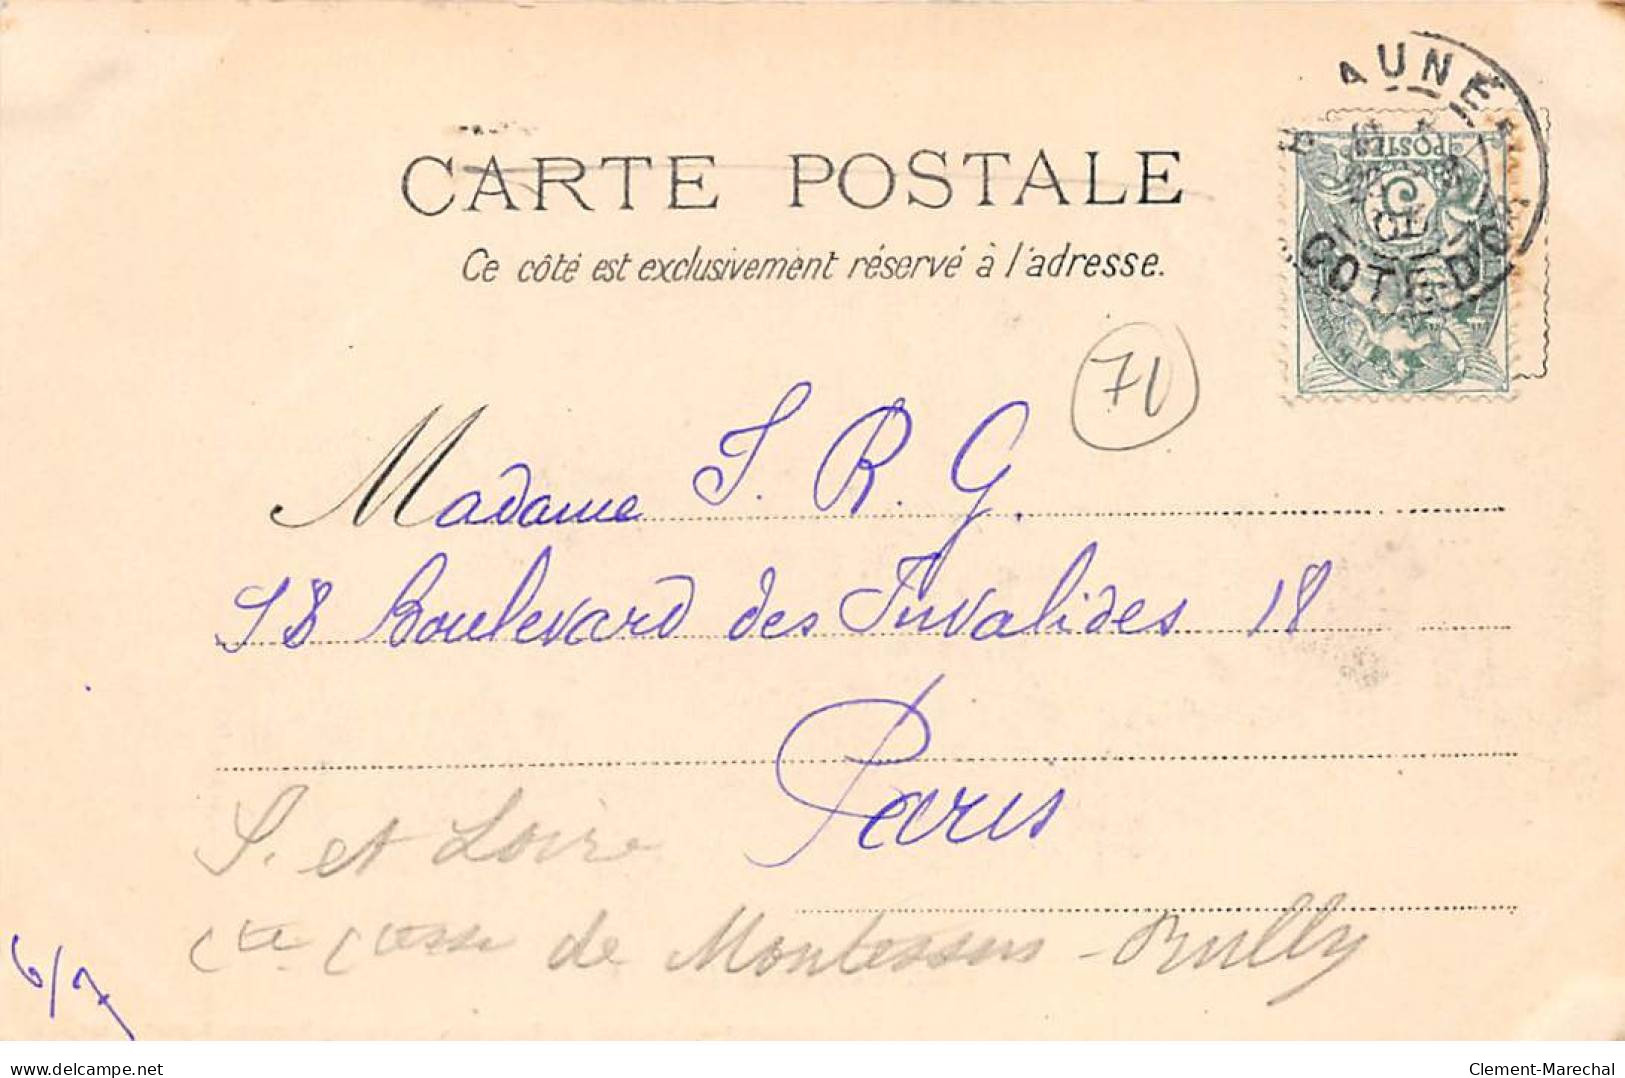 CARTE POSTALE
Ce côté est exclusivement réservé à l'adresse.
AUNE
POSTES
5
COTE-D'O
71
Madame J. R. G.
18 Boulevard des Invalides 18
Paris
S. et Loire
Cte Ctesse de Montessus-Rully
6/7
www.delcampe.net
Clement-Marechal